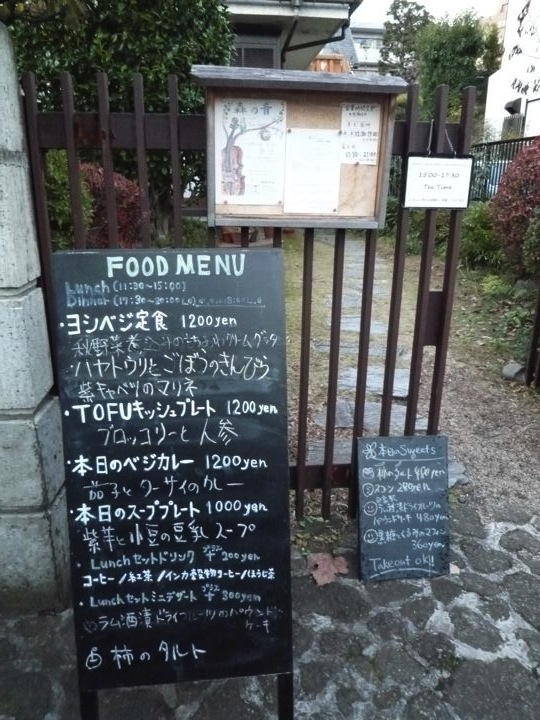 森の音
15:00-17:30
Tea Time
FOOD MENU
Lunch (11:30~15:00)
Dinner (17:30~20:00
・ヨシベジ定食 1200yen
秋野菜
・ハヤトウリとごぼうのきんぴら
紫キャベツのマリネ
・TOFUキッシュプレート 1200yen
ブロッコリーと人参
・本日のベジカレー 1200yen
茄子とターサイのカレー
・本日のスーププレート 1000yen
紫芋と小豆の豆乳スープ
・Lunchセットドリンク プラス+200yen
コーヒー/紅茶/インカ穀物コーヒー/ほうじ茶
・Lunchセットミニデザート プラス+300yen
ラム酒漬ドライフルーツのパウンドケーキ
柿のタルト
本日のSweets
柿のタルト 480yen
スコン 280yen
ラム酒漬ドライフルーツの
パウンドケーキ 480yen
黒糖とくるみのマフィン
360yen
Takeout ok!!